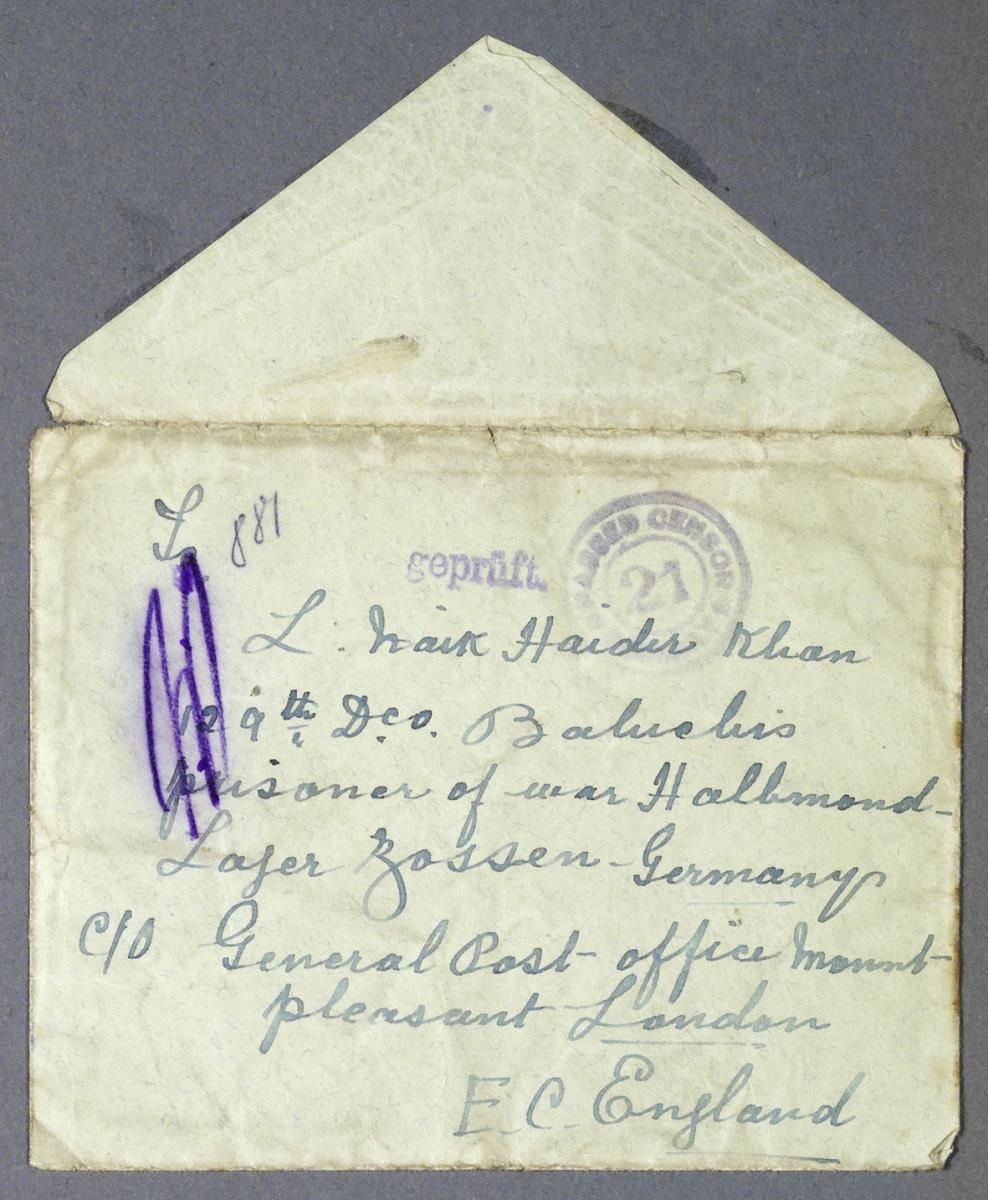 To
881
geprüft.
PASSED CENSOR
21
L. Naik Haider Khan
129th D.C.O. Baluchis
prisoner of war Halbmond-
Lager Zossen - Germany
C/O General Post office Mount-
pleasant London
E. C. England